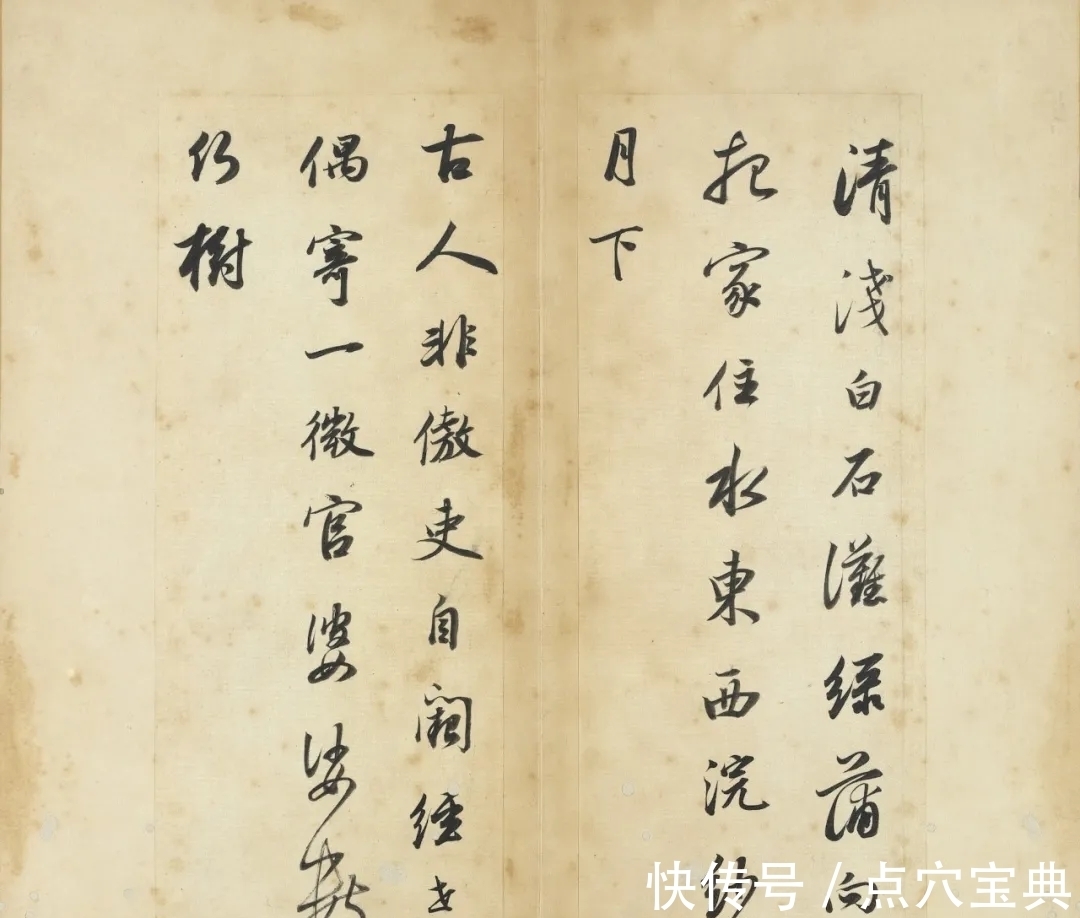 清淺白石灘綠蒲向
把家住水東西浣紗
月下
古人非傲吏自闕經世
偶寄一微官婆娑
樹
快传号 / 点穴宝典